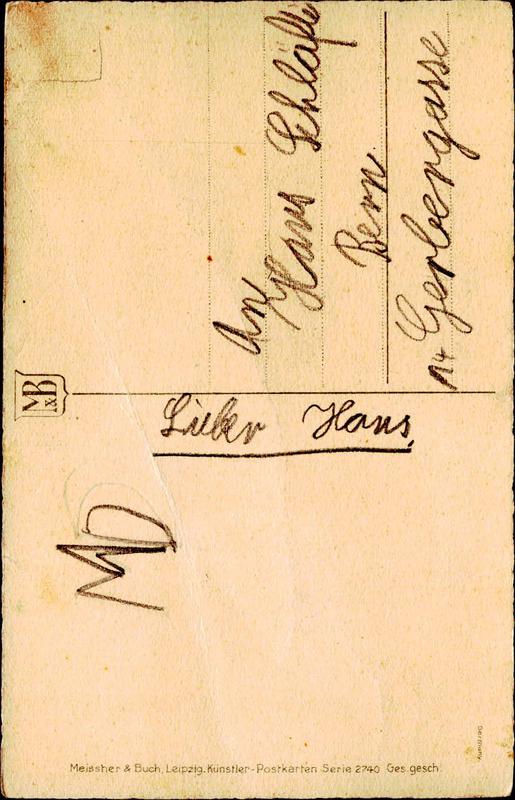 An
Hans Schläfli
Bern
14 Gerbergasse
M&B
Lieber Hans,
MD
Meissner & Buch, Leipzig. Künstler-Postkarten Serie 2740 Ges. gesch.
Germany